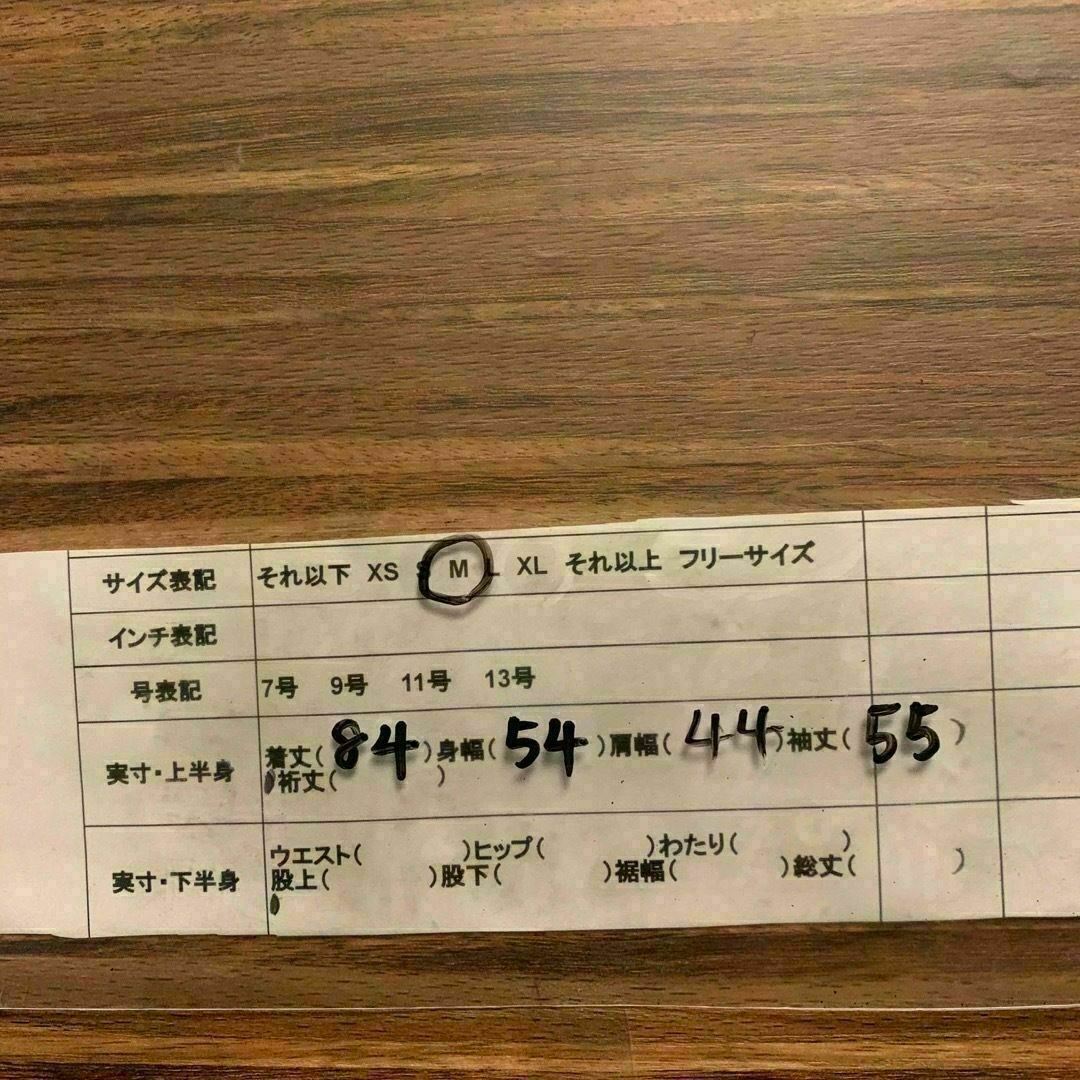 サイズ表記 それ以下 XS S M L XL それ以上 フリーサイズ
インチ表記
号表記 7号 9号 11号 13号
実寸・上半身 着丈(84)身幅(54)肩幅(44)袖丈(55)
裄丈( )
実寸・下半身 ウエスト( )ヒップ( )わたり( )
股上( )股下( )裾幅( )総丈( )